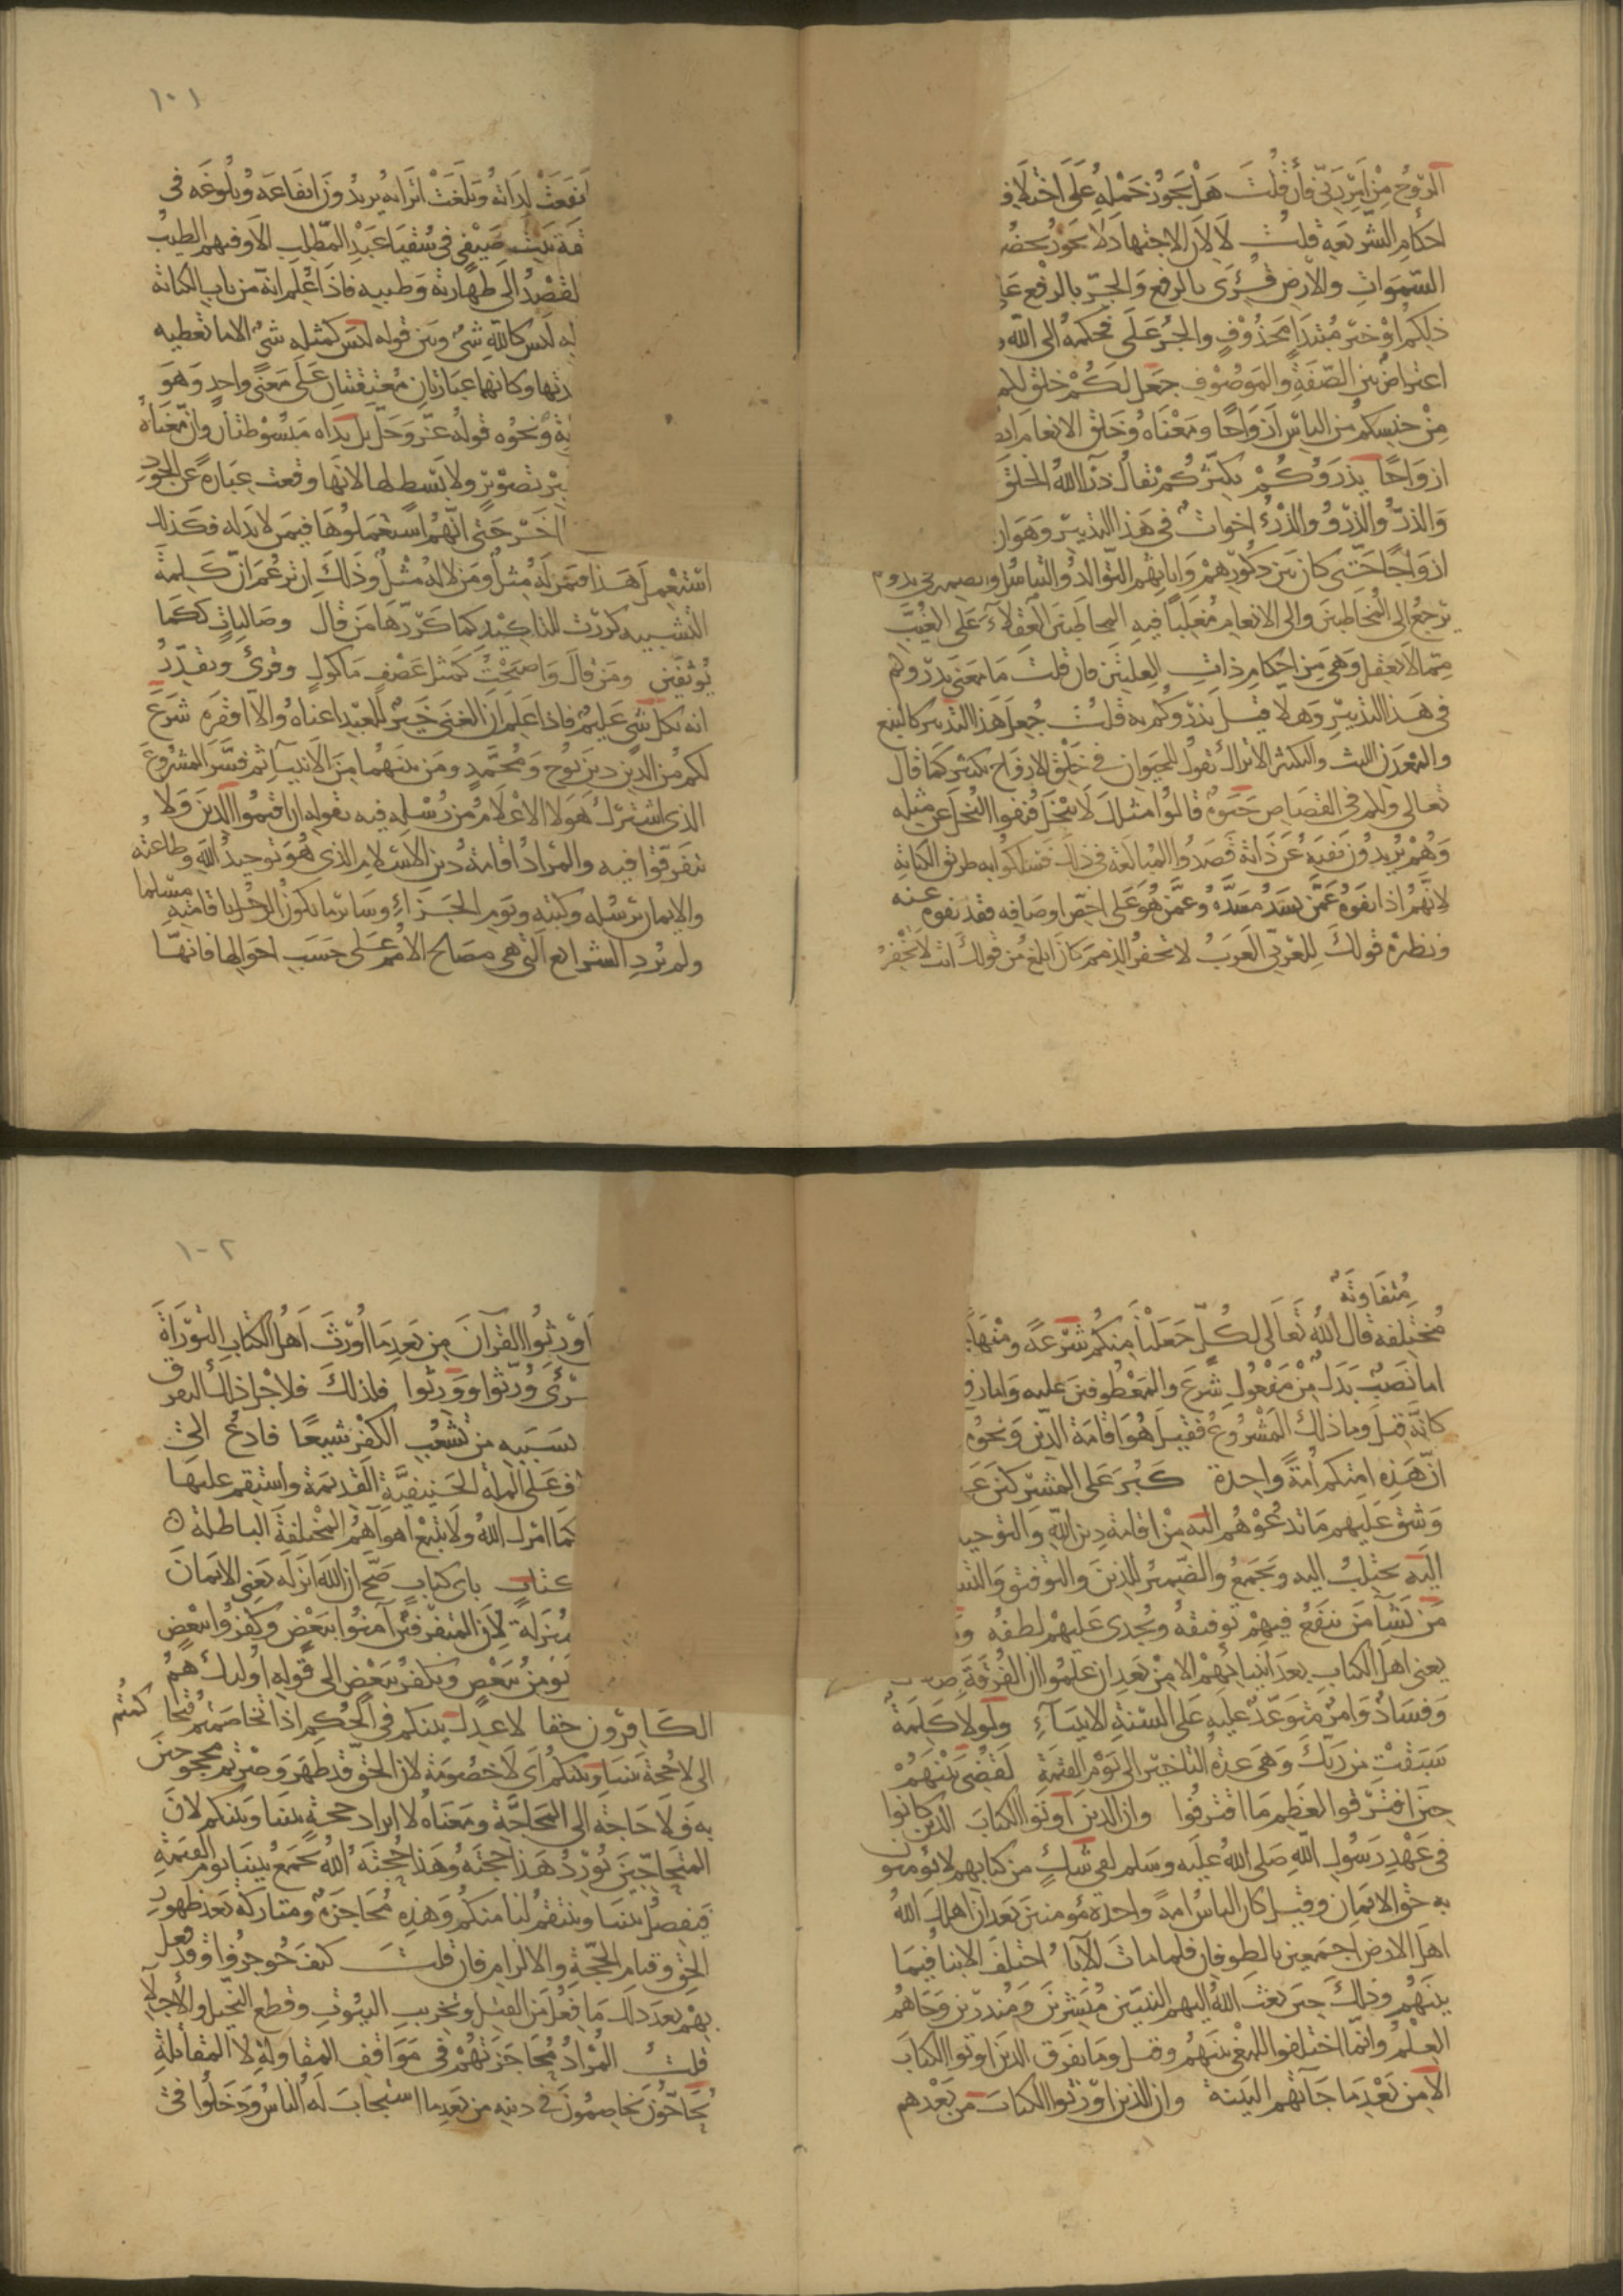 الروح من امر ربي فان قلت هل يجوز حمله على اختلاف
احكام الشريعة قلت لا لان الاجتهاد لا يجوز بحضر
السموات والارض قرئ بالرفع والجر بالرفع
ذلكم او خبر مبتدا محذوف والجر على فحكمه الى الله
اعتراض بين الصفة والموصوف جعل لكم خلق لكم
من جنسكم من الناس ازواجا ومعناه وخلق الانعام
ازواجا يذرؤكم يكثركم يقال ذرا الله الخلق
والذر والذرو والذرء اخوات في هذا التدبير وهو ان
ازواجا حتى كان بين ذكورهم واناثهم التوالد والتناسل والضمير في يذرؤكم
يرجع الى المخاطبين والى الانعام مغلبا فيه المخاطبين العقلاء على الغيب
مما لا يعقل وهي من احكام ذات العلتين فان قلت ما معنى يذرؤكم
في هذا التدبير وهلا قيل يذرؤكم به قلت جعل هذا التدبير كالمنبع
والمعدن للبث والتكثير الا تراك تقول للحيوان في خلق الازواج تكثير كما قال
تعالى ولكم في القصاص حيوة قالوا مثلك لا يبخل فنفوا البخل عن مثله
وهم يريدون نفيه عن ذاته قصدوا المبالغة في ذلك فسلكوا به طريق الكناية
لانهم اذا نفوه عمن يسد مسده وعمن هو على اخص اوصافه فقد نفوه عنه
ونظيره قولك للعربي العرب لا تخفر الذمم كان ابلغ من قولك انت لا تخفر
١٠١
ايفعت لداته وبلغت اترابه يريدون ايفاعه وبلوغه في
قة بنت صيفي في سقيا عبد المطلب الا وفيهم الطيب
لقصد الى طهارته وطيبه فاذا علم انه من باب الكناية
له ليس كالله شيء وبين قوله ليس كمثله شيء الا ما تعطيه
دتها وكانهما عبارتان معتقبتان على معنى واحد وهو
ية ونحوه قوله عز وجل بل يداه مبسوطتان فان معناه
ير تصوير ولا بسط لها لانها وقعت عبارة عن الجود
اخر حتى انهم استعملوها فيمن لا يد له فكذلك
استعمل هذا فيمن له مثل ومن لا له مثل ولك ان تزعم ان كلمة
التشبيه كررت للتاكيد كما كررها من قال وصاليات ككما
يؤثفين ومن قال واصبحت كمثل عصف ماكول وقرئ ويقدر
انه بكل شيء عليم فاذا علم ان الغنى خير للعبد اغناه والا افقره شرع
لكم من الدين دين نوح ومحمد ومن بينهما من الانبياء ثم فسر المشروع
الذي اشترك هولا الاعلام من رسله فيه بقوله ان اقيموا الدين ولا
تتفرقوا فيه والمراد اقامة دين الاسلام الذي هو توحيد الله وطاعته
والايمان برسله وكتبه ويوم الجزاء وسائر ما يكون الرجل باقامته مسلما
ولم يرد الشرائع التي هي مصالح الامم على حسب احوالها فانها
متفاوتة
مختلفة قال الله تعالى لكل جعلنا منكم شرعة ومنهاجا
اما نصب بدل من مفعول شرع والمعطوفين عليه واما رف
كانه قيل وما ذلك المشروع فقيل هو اقامة الدين ونحوه
ان هذه امتكم امة واحدة كبر على المشركين
وشق عليهم ما تدعوهم اليه من اقامة دين الله والتوحيد
اليه يجتلب اليه ويجمع والضمير للدين والتوفيق والتسد
من يشاء من ينفع فيهم توفيقه ويجدي عليهم لطفه
يعني اهل الكتاب بعد انبيائهم الا من بعد ان علموا ان الفرقة ضلال
وفساد وامر متوعد عليه على السنة الانبياء ولولا كلمة
سبقت من ربك وهي عدة التاخير الى يوم القيمة لقضي بينهم
حين افترقوا لعظم ما اقترفوا وان الذين اوتوا الكتاب الذين كانوا
في عهد رسول الله صلى الله عليه وسلم لفي شك من كتابهم لا يؤمنون
به حق الايمان وقيل كان الناس امة واحدة مؤمنين بعد ان اهلك الله
اهل الارض اجمعين بالطوفان فلما مات الاباء اختلف الابنا فيما
بينهم وذلك حين بعث الله اليهم النبيين مبشرين ومنذرين وجاهم
العلم وانما اختلفوا للبغي بينهم وقيل وما تفرق الذين اوتوا الكتاب
الا من بعد ما جاتهم البينة وان الذين اورثوا الكتاب من بعدهم
١٠٢
اورثوا القرآن من بعد ما اورث اهل الكتاب التوراة
رئ ورثوا وورثوا فلذلك فلاجل ذلك التفرق
بسببه من تشعب الكفر شيعا فادع الى
ف على الملة الحنيفية القديمة واستقم عليها
كما امرك الله ولا تتبع اهوآهم المختلفة الباطلة
كتاب باي كتاب صح ان الله انزله يعني الايمان
منزلة لان المتفرقين آمنوا ببعض وكفروا ببعض
نؤمن ببعض ونكفر ببعض الى قوله اوليك هم
الكافرون حقا لاعدل بينكم في الحكم اذا تخاصمتم فتحاكمتم
الي لا حجة بيننا وبينكم اي لا خصومة لان الحق قد ظهر وصرتم محجوجين
به فلا حاجة الى المحاجة ومعناه لا ايراد حجة بيننا وبينكم لان
المتحاجين يورد هذا حجته وهذا حجته الله يجمع بيننا يوم القيمة
فيفصل بيننا وينتقم لنا منكم وهذه محاجزة ومتاركة بعد ظهور
الحق وقيام الحجة والالزام فان قلت كيف حوجزوا وقد فعل
بهم بعد ذلك ما فعل من القتل وتخريب البيوت وقطع النخيل والاجلاء
قلت المراد محاجزتهم في مواقف المقاولة لا المقاتلة
يحاجون يخاصمون في دينه من بعد ما استجاب له الناس ودخلوا في